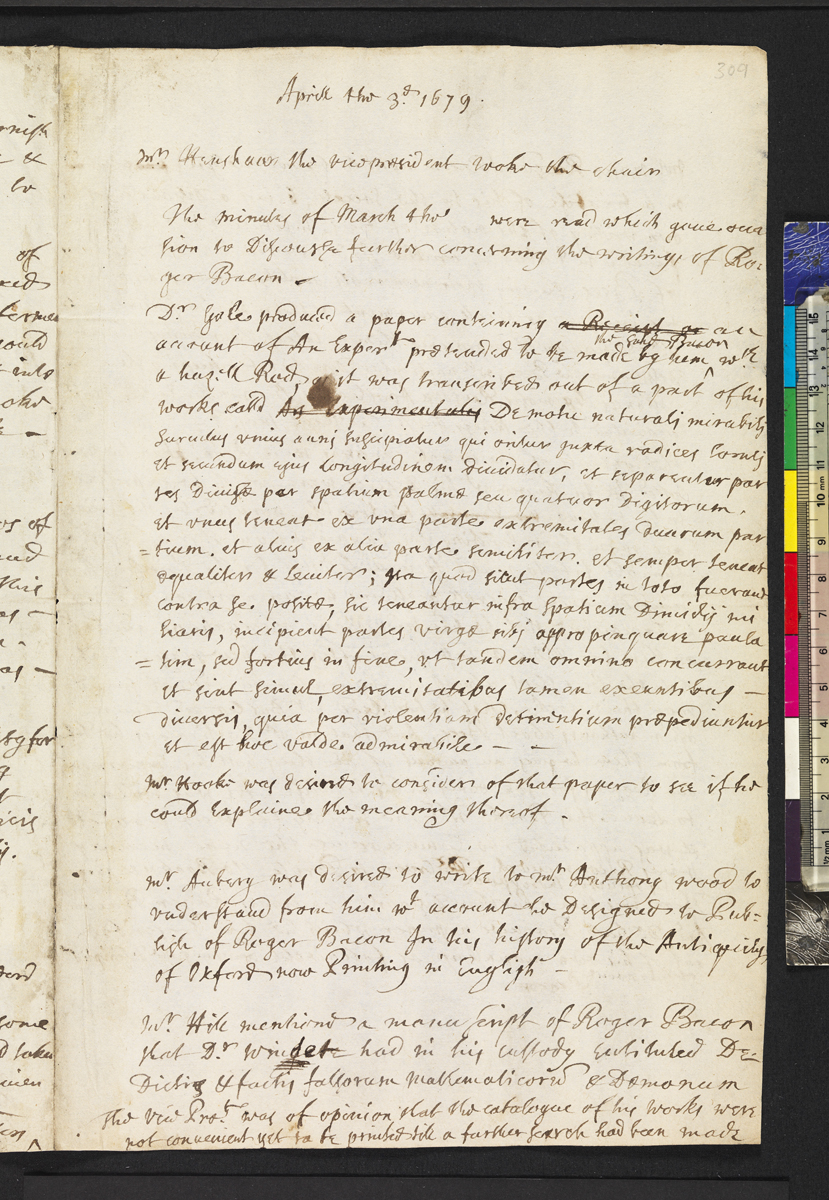 309
Aprill the 3.d 1679.
Mr. Henshaw the vicepræsident tooke the chair
The minutes of March the were read which gaue occa
sion to Discourse further concerning the writings of Ro:
ger Bacon -
Dr Gale produced a paper containing a Receipt or an
account of An Expert. prætended to be made by hem wth
the said Bacon
a hazell Rod as it was transcribed out of a part of his
works calld Ars Experimentalis De motu naturali mirabili
Surculus unius anni suscipiatur qui oritur juxta radices Coruli
et secundum ejus longitudinem Diuidatur, et separentur par
tes Diuisæ per spatium palmæ seu quatuor Digitorum.
et unus teneat ex una parte extremitates duarum par
=tium. et alius ex alia parte similiter. et semper teneat
equaliter & leuiter; ita quod sicut partes in toto fuerant
contra se positæ, sic teneantur infra spatium Dimidij mi
liaris, incipient partes virgæ sibj appropinquare paula
=tim, sed fortius in fine, ut tandem omnino concurrant
et sint simul, extremitatibus tamen exeuntibus -
diuersis, quia per violentiam detinentium præpediuntur
et est hoc valde admirabile - -
Mr Hooke was desired to consider of that paper to see if he
could Explaine the meaning thereof.
Mr. Aubery was desired to write to Mr. Anthony wood to
understand from him wt account he Designed to Pub-
lish of Roger Bacon In his history of the Antiquitys
of Oxford now Printing in English -
Mr. Hill mentiond a manuscript of Roger Bacon
that Dr. windet had in his custody Entituled De-
Dictis & factis fallorum Mathematicorū & Dæmonum
The vice Præst. was of opinion that the catalogue of his works were
not convenient yet to be printed till a further search had been made